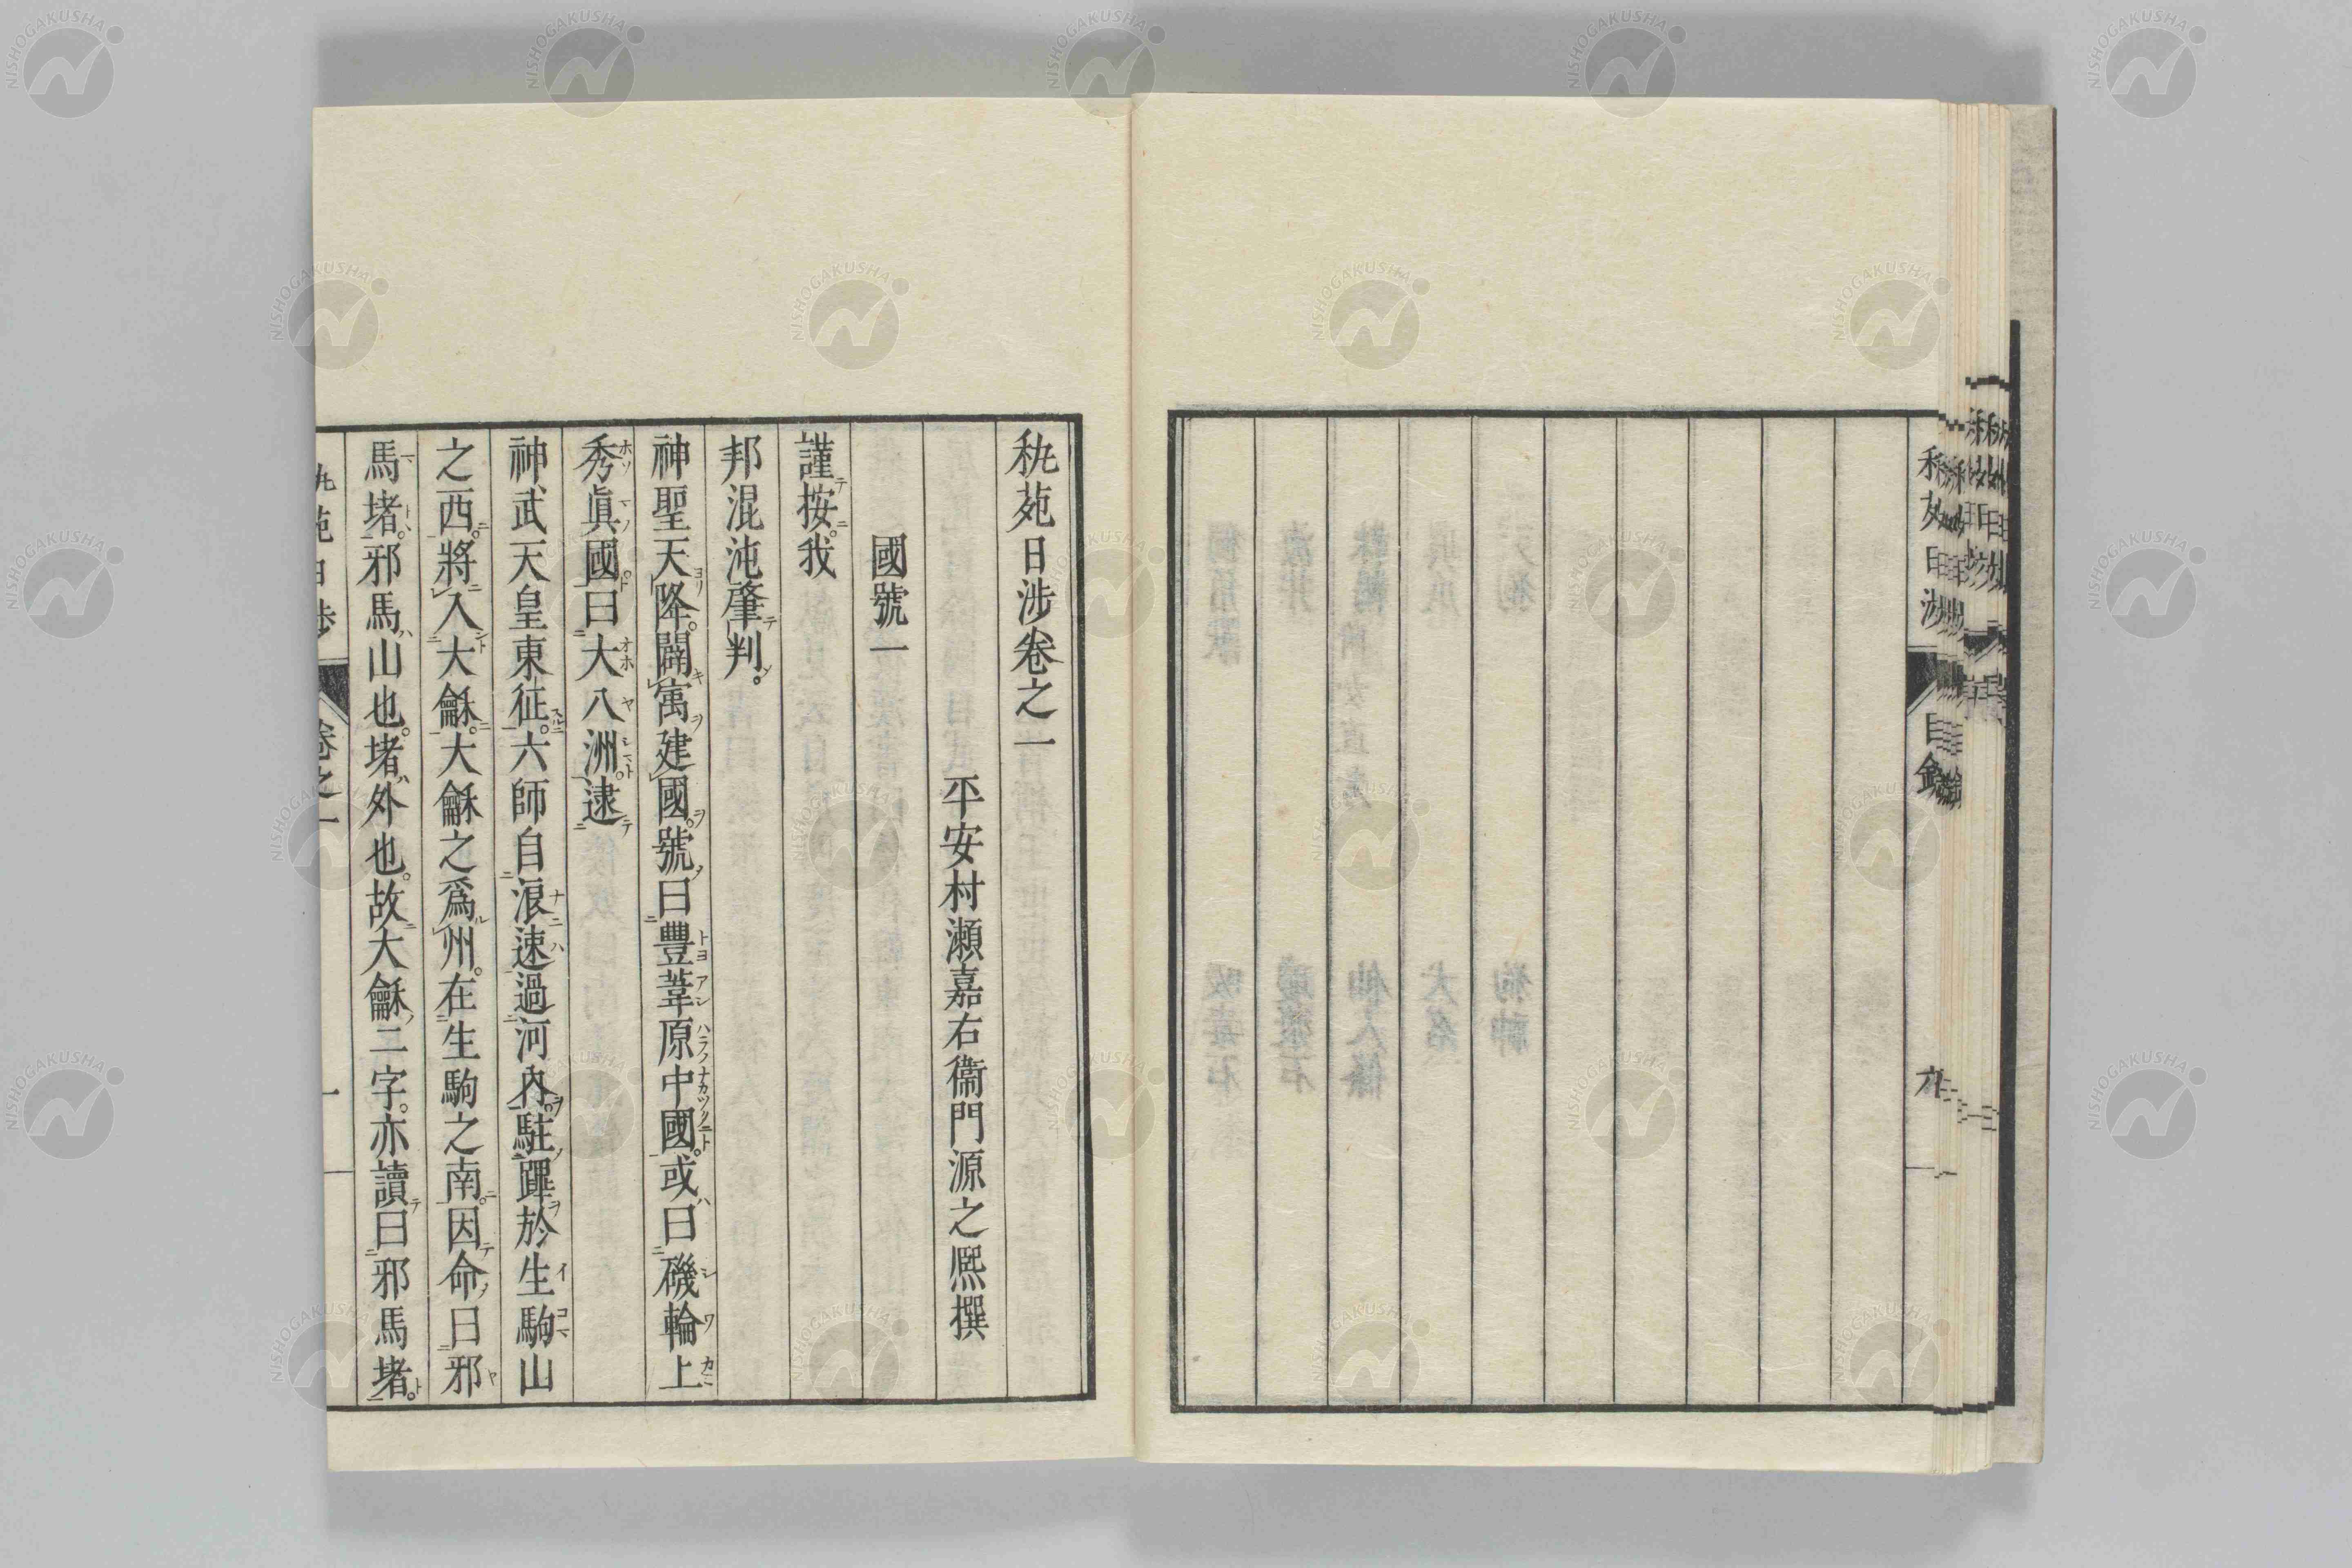 秇苑日涉卷之一
平安村瀨嘉右衞門源之熙撰
國號一
謹按。我
邦混沌肇判。
神聖天降。闢寓建國。號曰豐葦原中國。或曰磯輪上
秀眞國。曰大八洲。逮
神武天皇東征。六師自浪速過河內。駐蹕於生駒山
之西。將入大龢。大龢之爲州。在生駒之南。因命曰邪
馬堵。邪馬山也。堵外也。故大龢二字。亦讀曰邪馬堵。
卷之一
一
目錄
九
NISHOGAKUSHA